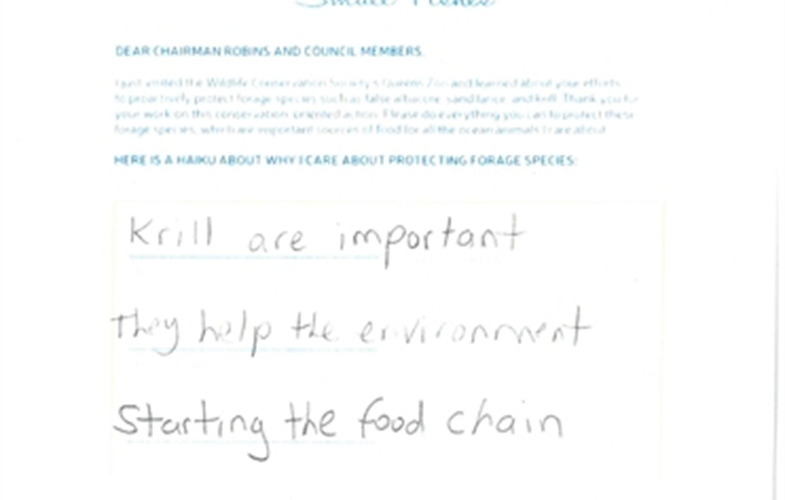 DEAR CHAIRMAN ROBINS AND COUNCIL MEMBERS,
I just visited the Wildlife Conservation Society's Queens Zoo and learned about your efforts
to proactively protect forage species such as false albacore, sand lance, and krill. Thank you for
your work on this conservation-oriented action. Please do everything you can to protect these
forage species, which are important sources of food for all the ocean animals I care about.
HERE IS A HAIKU ABOUT WHY I CARE ABOUT PROTECTING FORAGE SPECIES:
Krill are important
They help the environment
Starting the food chain